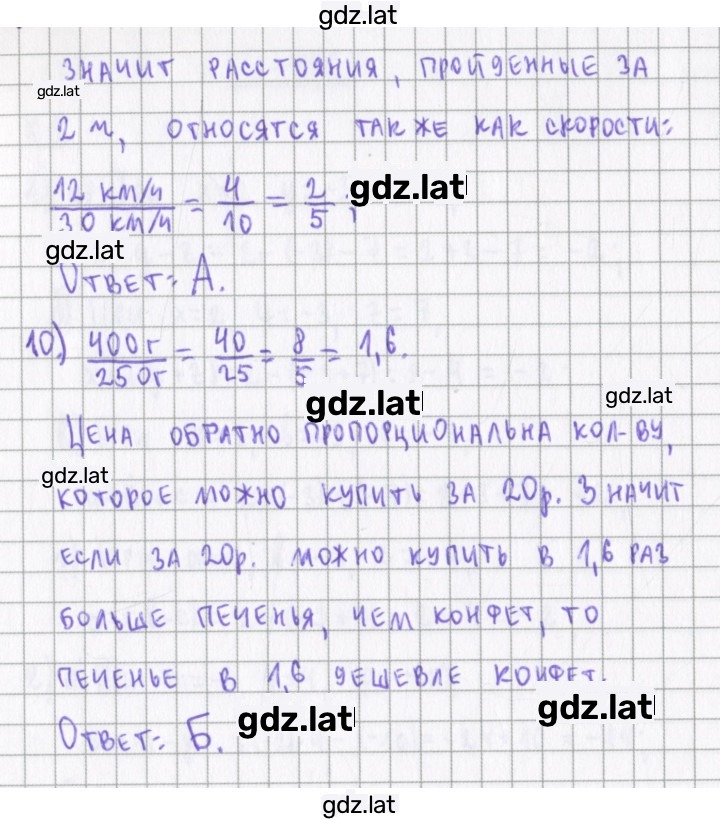 gdz.lat
ЗНАЧИТ РАССТОЯНИЯ, ПРОЙДЕННЫЕ ЗА
gdz.lat
2 м, ОТНОСЯТСЯ ТАК ЖЕ КАК СКОРОСТИ:
12 км/ч / 30 км/ч = 4/10 = 2/5;
gdz.lat
gdz.lat
ОТВЕТ: А.
10) 400г/250г = 40/25 = 8/5 = 1,6.
gdz.lat
gdz.lat
ЦЕНА ОБРАТНО ПРОПОРЦИОНАЛЬНА КОЛ-ВУ,
gdz.lat
КОТОРОЕ МОЖНО КУПИТЬ ЗА 20р. ЗНАЧИТ
ЕСЛИ ЗА 20р. МОЖНО КУПИТЬ В 1,6 РАЗ
БОЛЬШЕ ПЕЧЕНЬЯ, ЧЕМ КОНФЕТ, ТО
ПЕЧЕНЬЕ В 1,6 ДЕШЕВЛЕ КОНФЕТ.
gdz.lat
gdz.lat
ОТВЕТ: Б.
gdz.lat